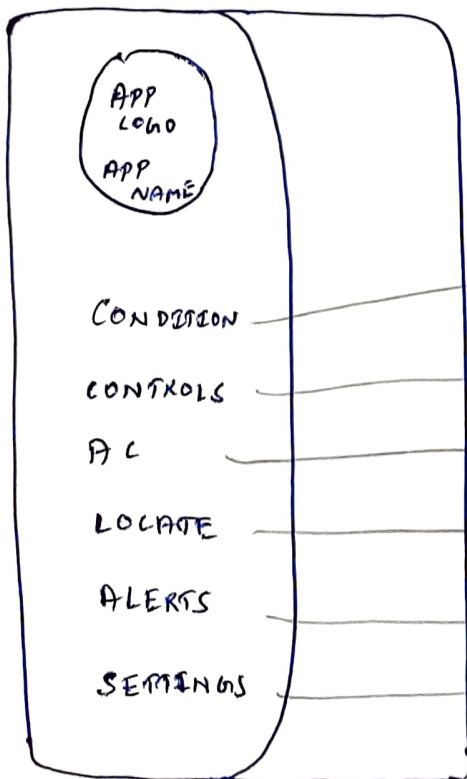 APP
LOGO
APP
NAME
CONDITION
CONTROLS
AC
LOCATE
ALERTS
SETTINGS